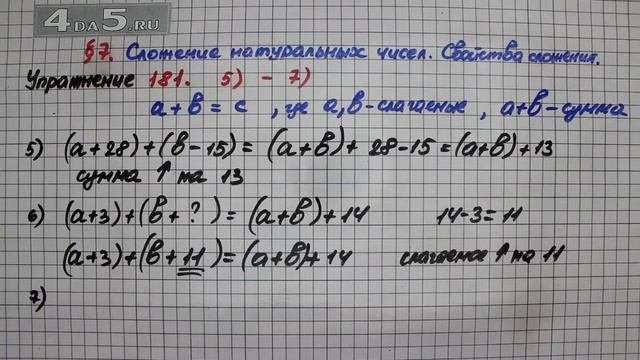 4DA5.RU
§7. Сложение натуральных чисел. Свойства сложения.
Упражнение 181. 5) - 7)
a+b=c, где a,b-слагаемые, a+b-сумма
5) (a+28)+(b-15)=(a+b)+28-15=(a+b)+13
сумма ↑ на 13
6) (a+3)+(b+?)=(a+b)+14 14-3=11
(a+3)+(b+11)=(a+b)+14 слагаемое ↑ на 11
7)